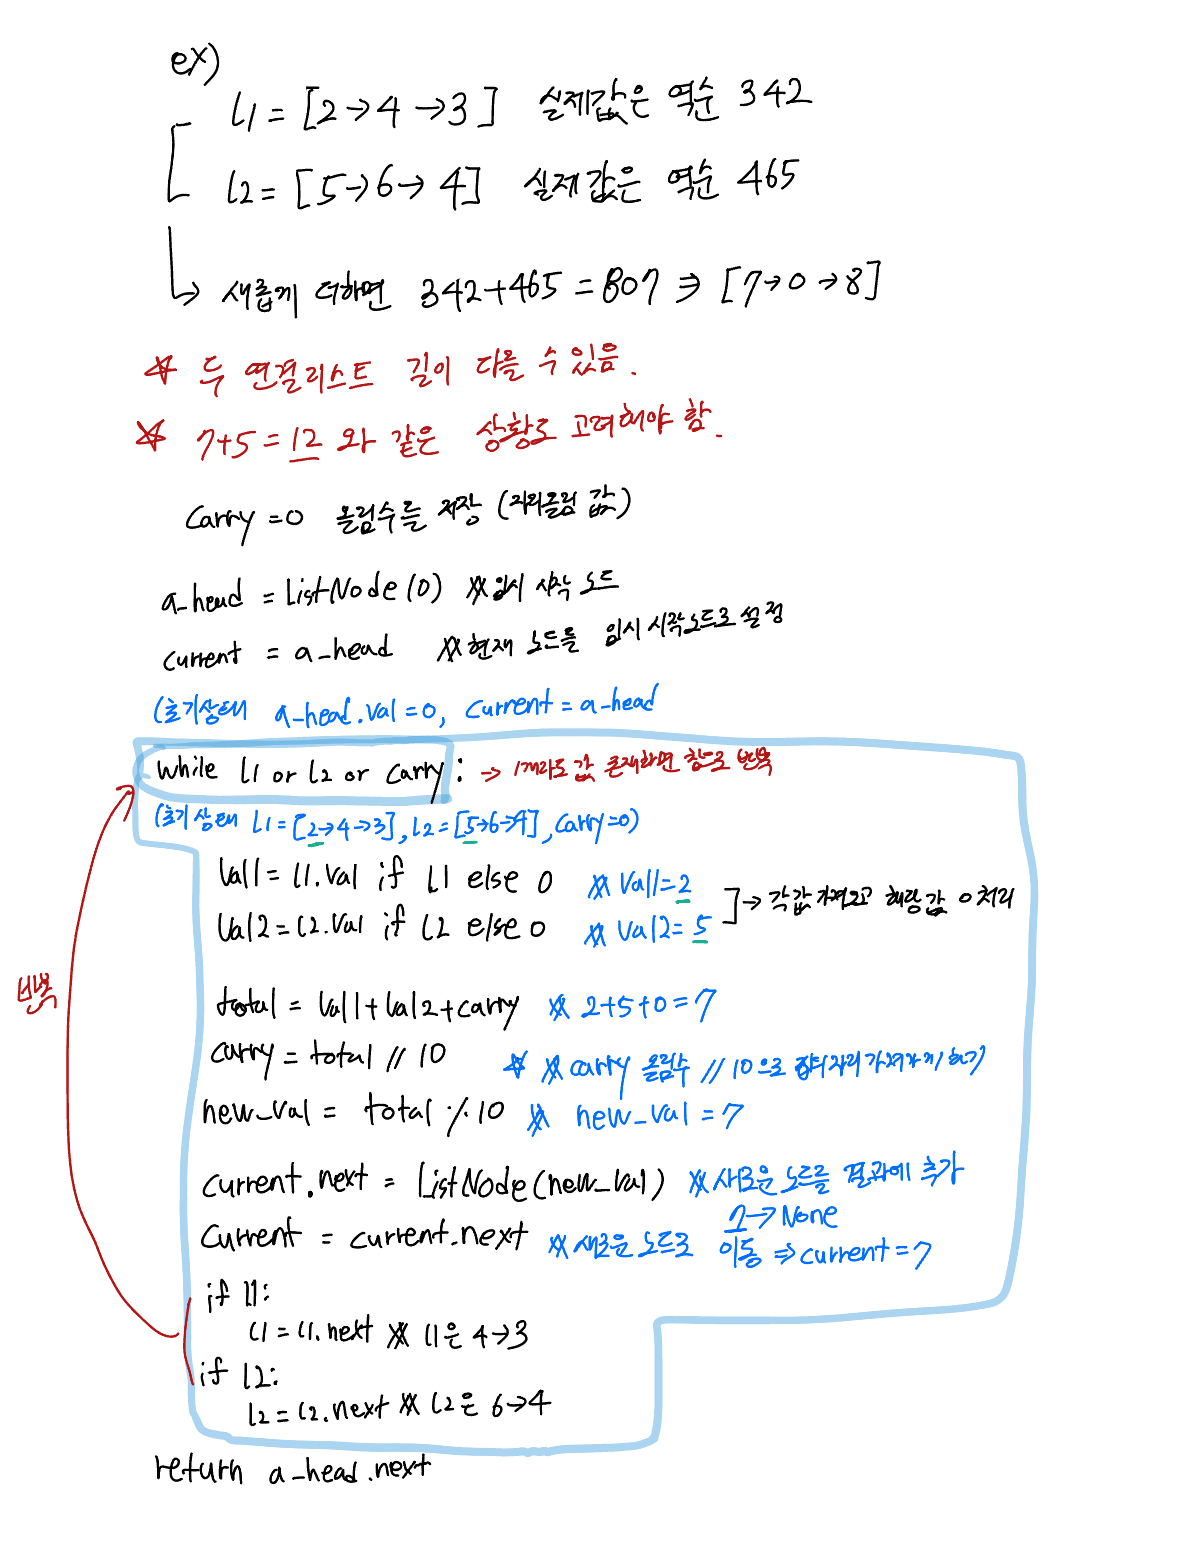 ex)
l1 = [2→4→3] 실제값은 역순 342
l2 = [5→6→4] 실제값은 역순 465
↳ 새롭게 더하면 342+465=807 ⇒ [7→0→8]
☆ 두 연결리스트 길이 다를 수 있음.
☆ 7+5=12 와 같은 상황도 고려해야 함.
carry=0 올림수를 저장 (자리올림 값)
a_head = ListNode(0) ※임시 시작 노드
current = a_head ※현재 노드를 임시 시작노드로 설정
(초기상태 a_head.val=0, current=a_head
while l1 or l2 or carry: → 1개라도 값 존재하면 참으로 반복
(초기상태 l1=[2→4→3], l2=[5→6→4], carry=0)
val1 = l1.val if l1 else 0 ※ val1=2
val2 = l2.val if l2 else 0 ※ val2=5
]→ 각값 가져오고 해당값 0 처리
반복
total = val1+val2+carry ※ 2+5+0=7
carry = total // 10 ☆ ※ carry 올림수 // 10으로 십의 자리 가져가기 하기)
new_val = total % 10 ※ new_val = 7
current.next = ListNode(new_val) ※새로운 노드를 결과에 추가
7→None
current = current.next ※새로운 노드로 이동 ⇒ current=7
if l1:
l1 = l1.next ※ l1은 4→3
if l2:
l2 = l2.next ※ l2은 6→4
return a_head.next